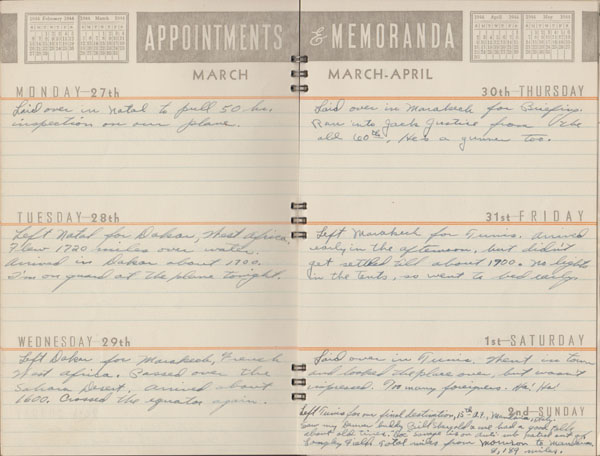 1944 February 1944
1944 March 1944
APPOINTMENTS
MARCH
MONDAY 27th
Laid over in Natal to pull 50 hr.
inspection on our plane.
TUESDAY 28th
Left Natal for Dakar, West Africa.
Flew 1720 miles over water.
Arrived in Dakar about 1700.
I'm on guard at the plane tonight.
WEDNESDAY 29th
Left Dakar for Marakech, French
West Africa. Passed over the
Sahara Desert. Arrived about
1600. Crossed the equator again.
& MEMORANDA
1944 April 1944
1944 May 1944
MARCH-APRIL
30th THURSDAY
Laid over in Marakech for Briefing.
Ran into Jack Justice from the
old 60th. He's a gunner too.
31st FRIDAY
Left Marakech for Tunis. Arrived
early in the afternoon, but didn't
get settled till about 1900. No lights
in the tents, so went to bed early.
1st SATURDAY
Laid over in Tunis. Went in town
and looked the place over, but wasn't
impressed. Too many foreigners. Ha! Ha!
2nd SUNDAY
Left Tunis for our final destination, 15th A.F., Italy.
Saw my former buddy and we had a good talk
about old times. on anti sub patrol out of
Langley Field. Total miles from Morrison to
miles.